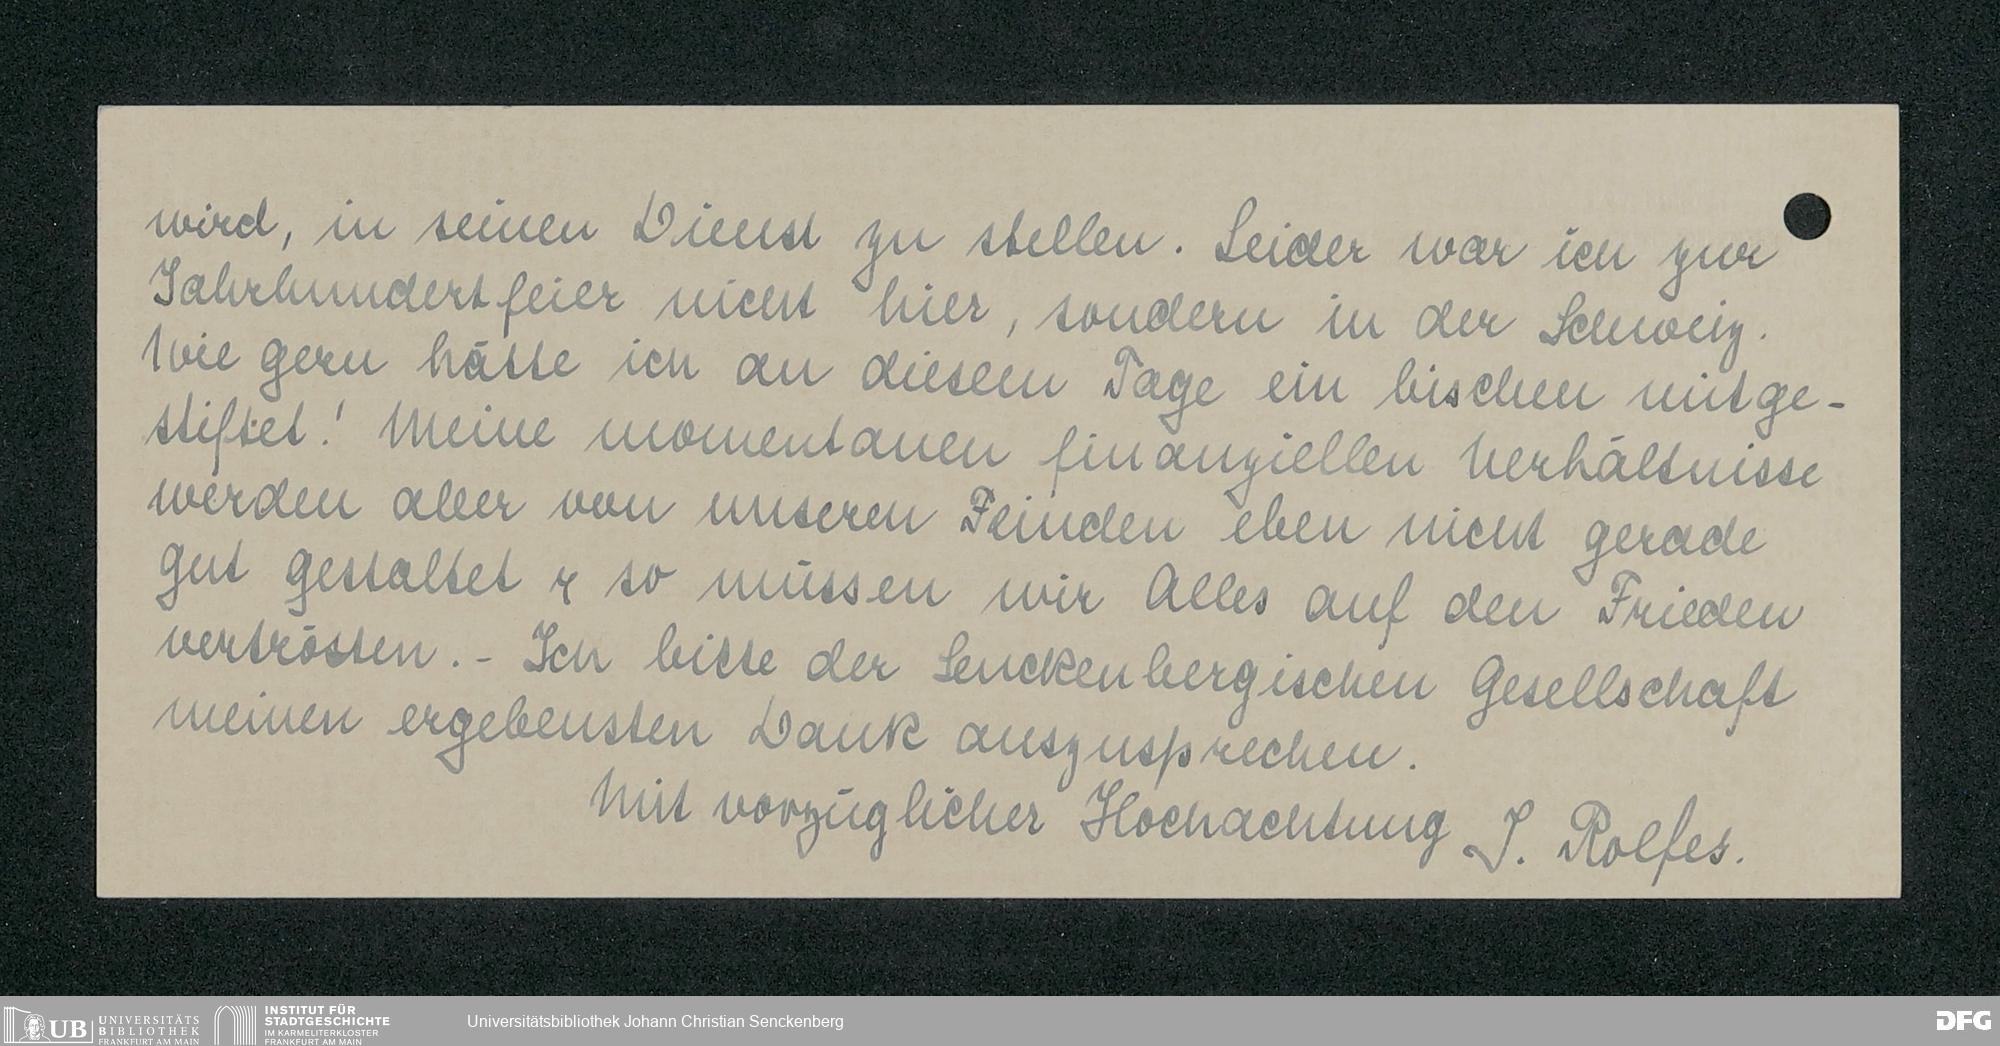 wird, in seinen Dienst zu stellen. Leider war ich zur
Jahrhundertfeier nicht hier, sondern in der Schweiz.
Wie gern hätte ich an diesem Tage ein bischen mitge-
stiftet! Meine momentanen finanziellen Verhältnisse
werden aber von unseren Feinden eben nicht gerade
gut gestaltet & so müssen wir Alles auf den Frieden
vertrösten. - Ich bitte der Senckenbergischen Gesellschaft
meinen ergebensten Dank auszusprechen.
Mit vorzüglicher Hochachtung J. Rolfes.
UB
UNIVERSITÄTS
BIBLIOTHEK
FRANKFURT AM MAIN
INSTITUT FÜR
STADTGESCHICHTE
IM KARMELITERKLOSTER
FRANKFURT AM MAIN
Universitätsbibliothek Johann Christian Senckenberg
DFG